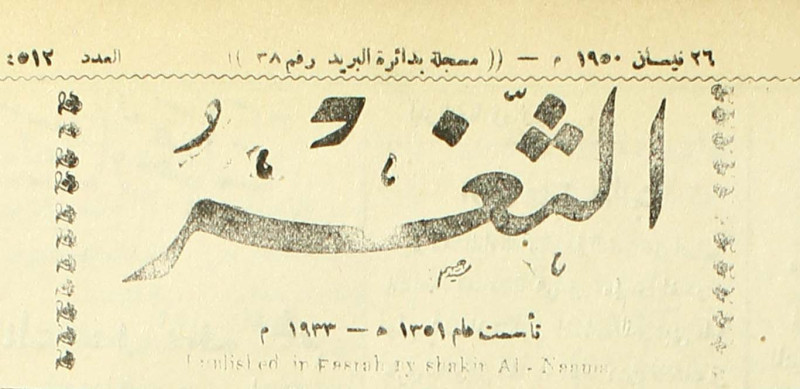 ٢٦ نيسان ١٩٥٠ م — (( مسجلة بدائرة البريد رقم ٣٨ )) العدد ٤٥١٢
الثَّغْرُ
تأسست عام ١٣٥١ ه — ١٩٣٣ م
in Basrah by shakir Al - Neama